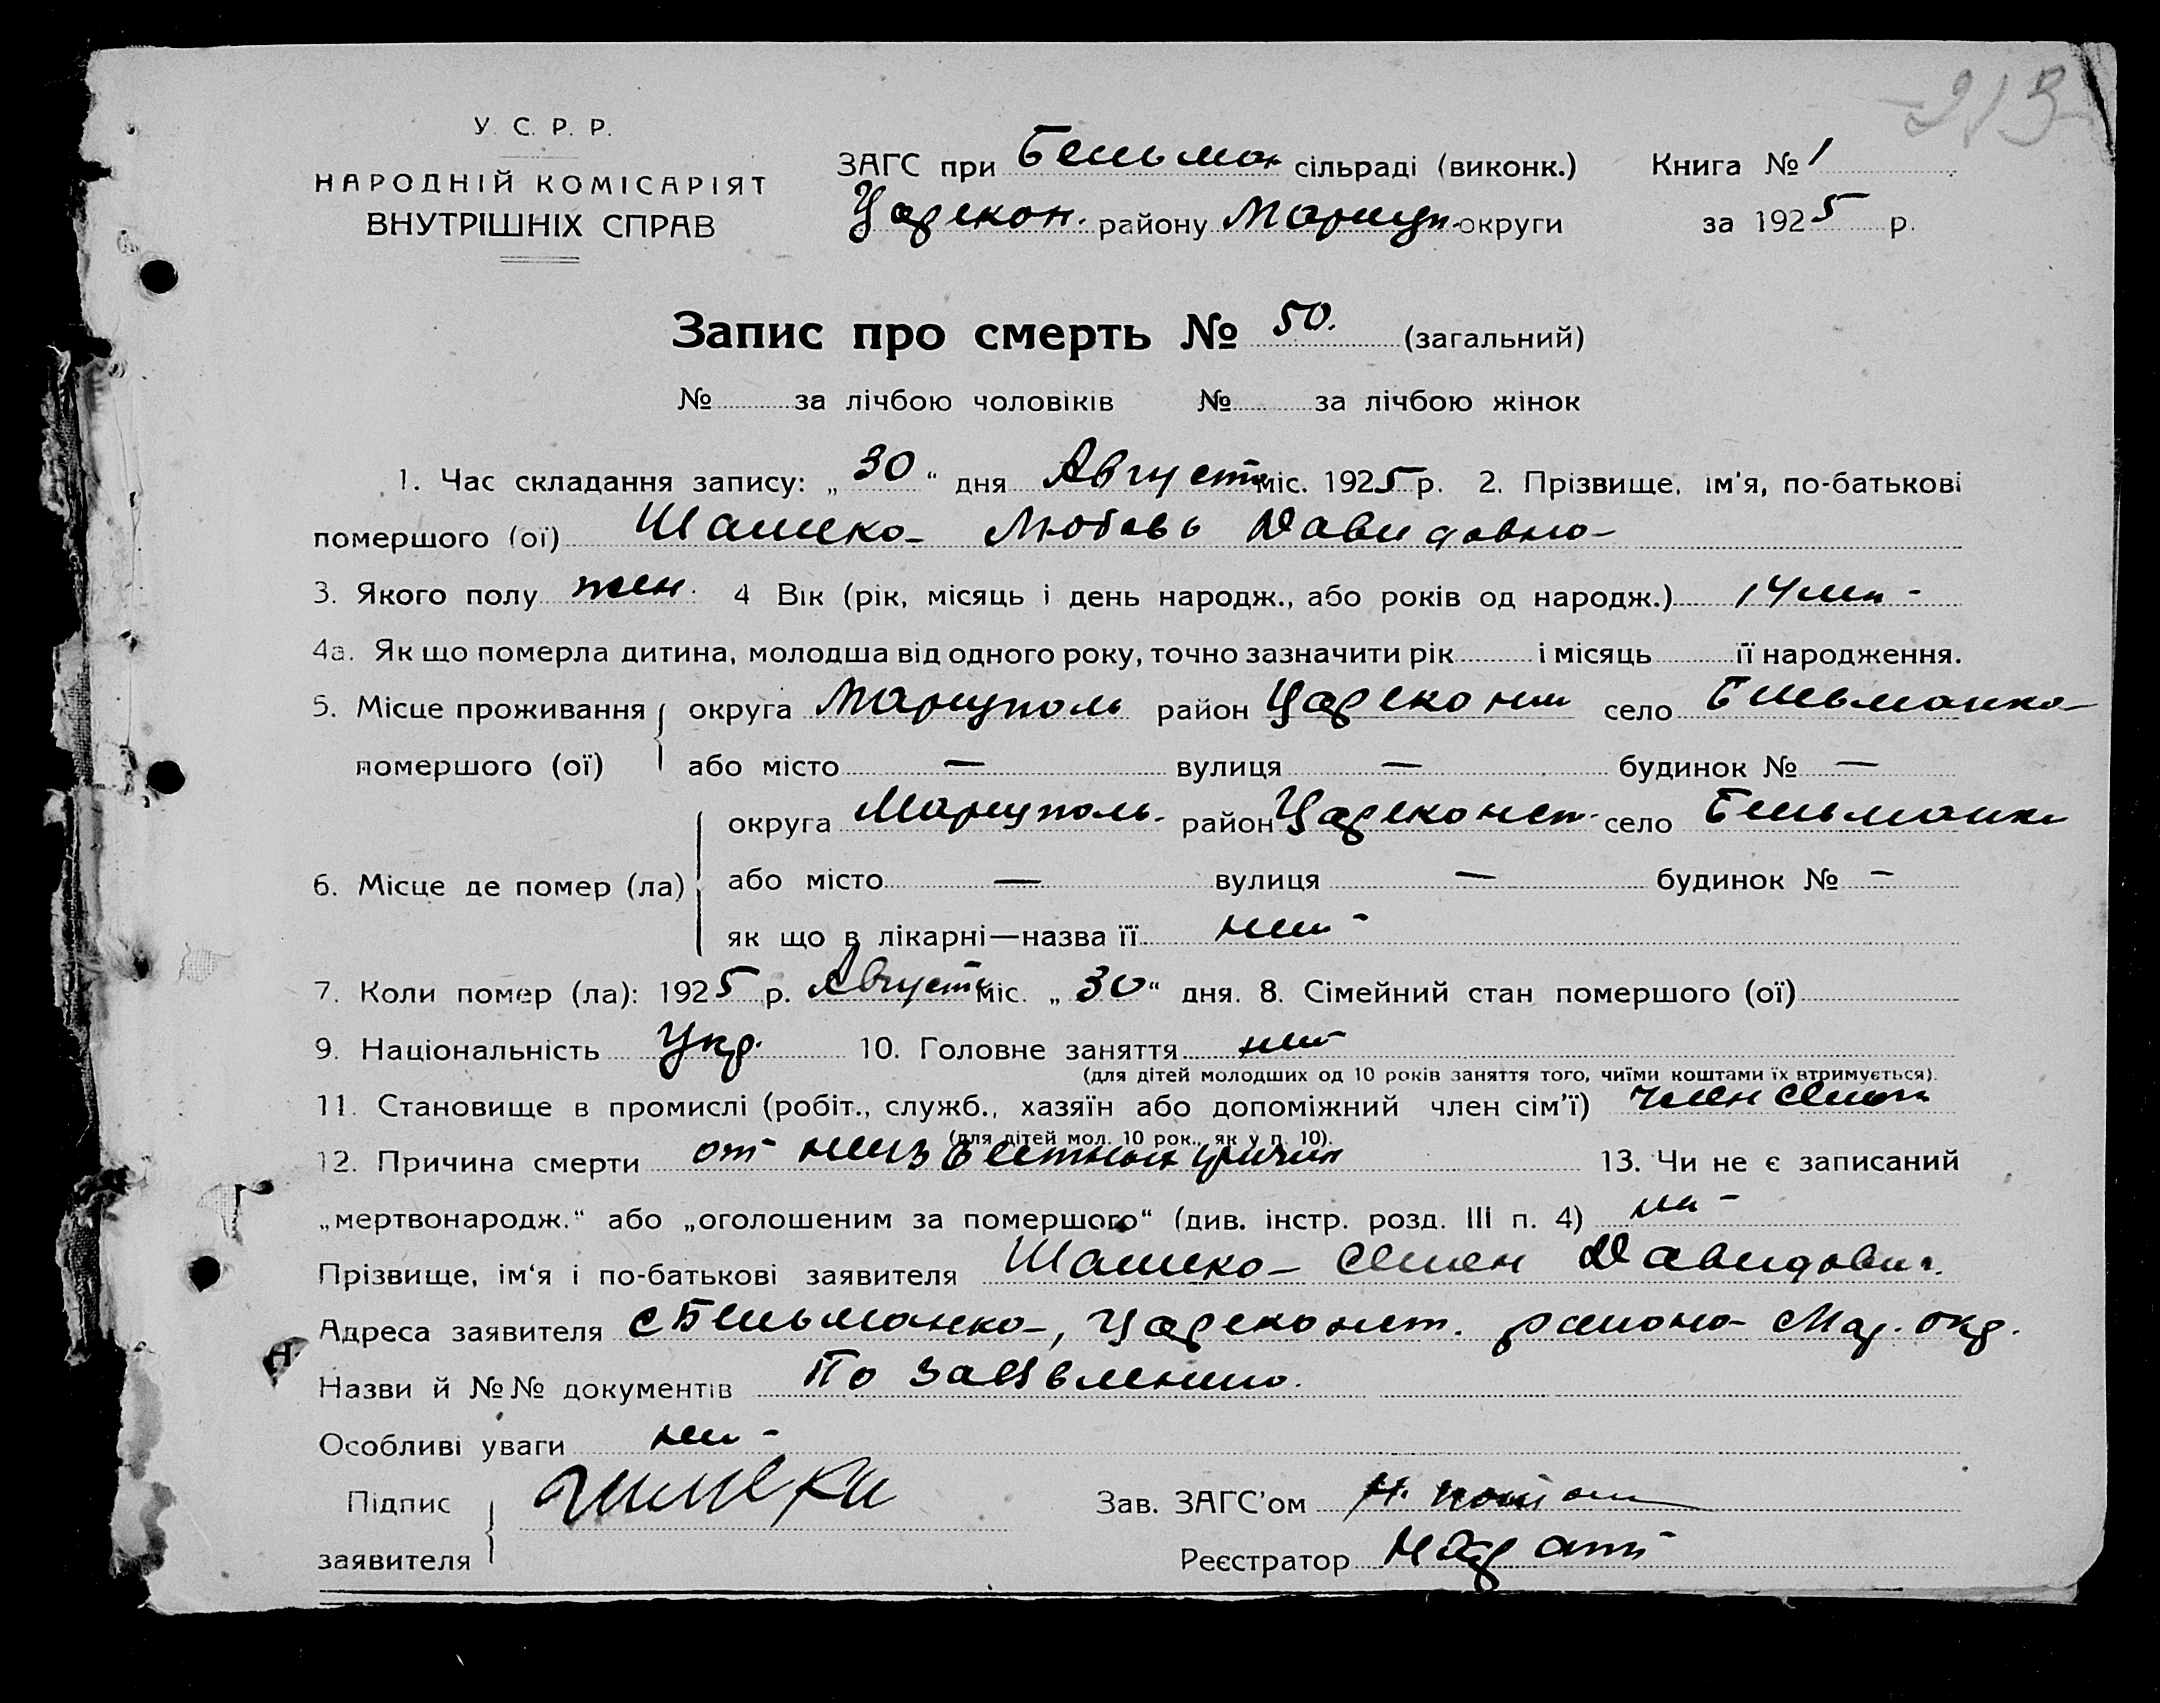 213
У. С. Р. Р.
НАРОДНІЙ КОМІСАРІЯТ
ВНУТРІШНІХ СПРАВ
ЗАГС при Бельман сільраді (виконк.) Книга № 1
Царекон. району Мариуп. округи за 1925 р.
Запис про смерть № 50. (загальний)
№ за лічбою чоловіків № за лічбою жінок
1. Час складання запису: „30“ дня Августа міс. 1925 р. 2. Прізвище, ім'я, по-батькові
помершого (ої) Любовь Давидовна
3. Якого полу жен. 4 Вік (рік, місяць і день народж., або років од народж.) 14 лет
4а. Як що померла дитина, молодша від одного року, точно зазначити рік і місяць її народження.
5. Місце проживання округа Мариуполь район село Бельманка
помершого (ої) або місто — вулиця — будинок № —
округа Мариуполь. район Цареконст. село Бельманка
6. Місце де помер (ла) або місто — вулиця — будинок № —
як що в лікарні—назва її нет
7. Коли помер (ла): 1925 р. Августа міс. „30“ дня. 8. Сімейний стан помершого (ої)
9. Національність Укр. 10. Головне заняття нет
(для дітей молодших од 10 років заняття того, чиїми коштами їх втримується).
11. Становище в промислі (робіт., служб., хазяїн або допоміжний член сім'ї) член семьи
(для дітей мол. 10 рок., як у п. 10).
12. Причина смерти от неизвестных причин 13. Чи не є записаний
„мертвонародж.“ або „оголошеним за помершого“ (див. інстр. розд. III п. 4) нет
Прізвище, ім'я і по-батькові заявителя Семен Давидович.
Адреса заявителя с Бельманка, Цареконст. района Мар. окр.
Назви й №№ документів По заявлению.
Особливі уваги нет
Підпис Зав. ЗАГС'ом
заявителя Реєстратор